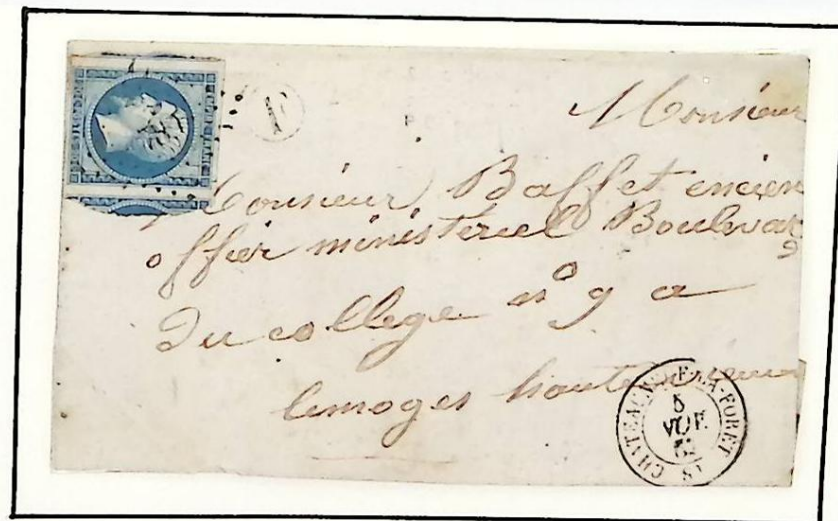 Monsieur
Monsieur Baffet encien
offier ministeriel Boulevar
Du college n° 9 a
limoges haute vienne
CHATEAUNEUF-LA-FORET
5
62